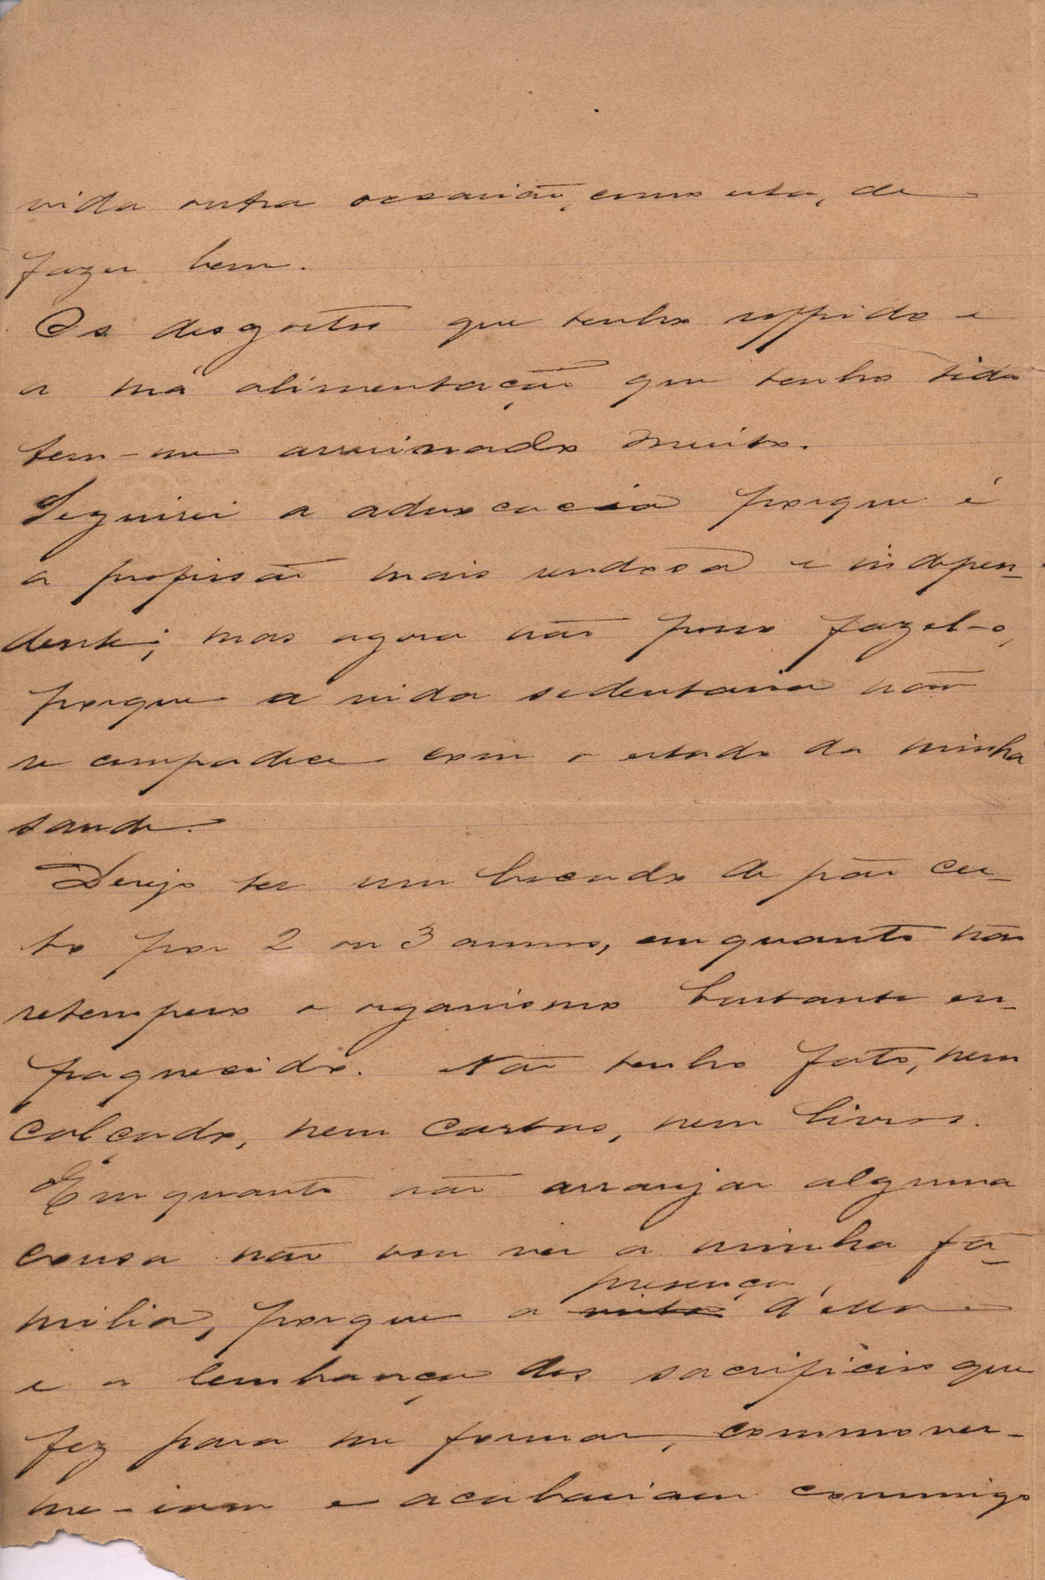 vida outra occasião, como esta, de
fazer bem.
Os desgostos que tenho soffrido e
a má alimentação que tenho tido
tem-me arruinado muito.
Seguirei a advocacia porque é
a profissão mais rendosa e indepen-
dente; mas agora não posso fazel-o,
porque a vida sedentaria não
se compadece com o estado da minha
saude.
Desejo ter um bocado de pão cer-
to por 2 ou 3 annos, emquanto não
retempero o organismo bastante en-
fraquecido. Não tenho fato, nem
calçado, nem cartas, nem livros.
Emquanto não arranjar alguma
cousa não vou ver a minha fa-
presença
milia, porque a d'ella
e a lembrança dos sacrificios que
fez para me formar, commover-
me-iam e acabariam commigo